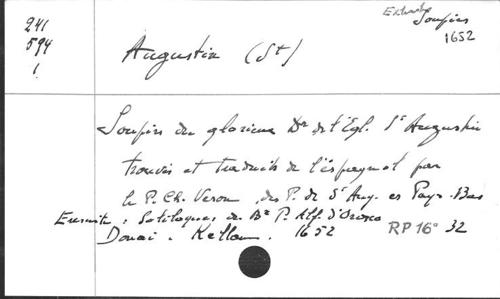 241
594
1.
Augustin (St)
Extraits
Soupirs
1652
Soupirs du glorieux Dr de l'Egl. St Augustin
trouvés et traduits de l'espagnol par
le P. Ch. Veron, des P. de St Aug. es Pays-Bas
Ensuite: Soliloques du Bx P. Alf. d'Orosco
Douai. Kellam. 1652 RP 16° 32